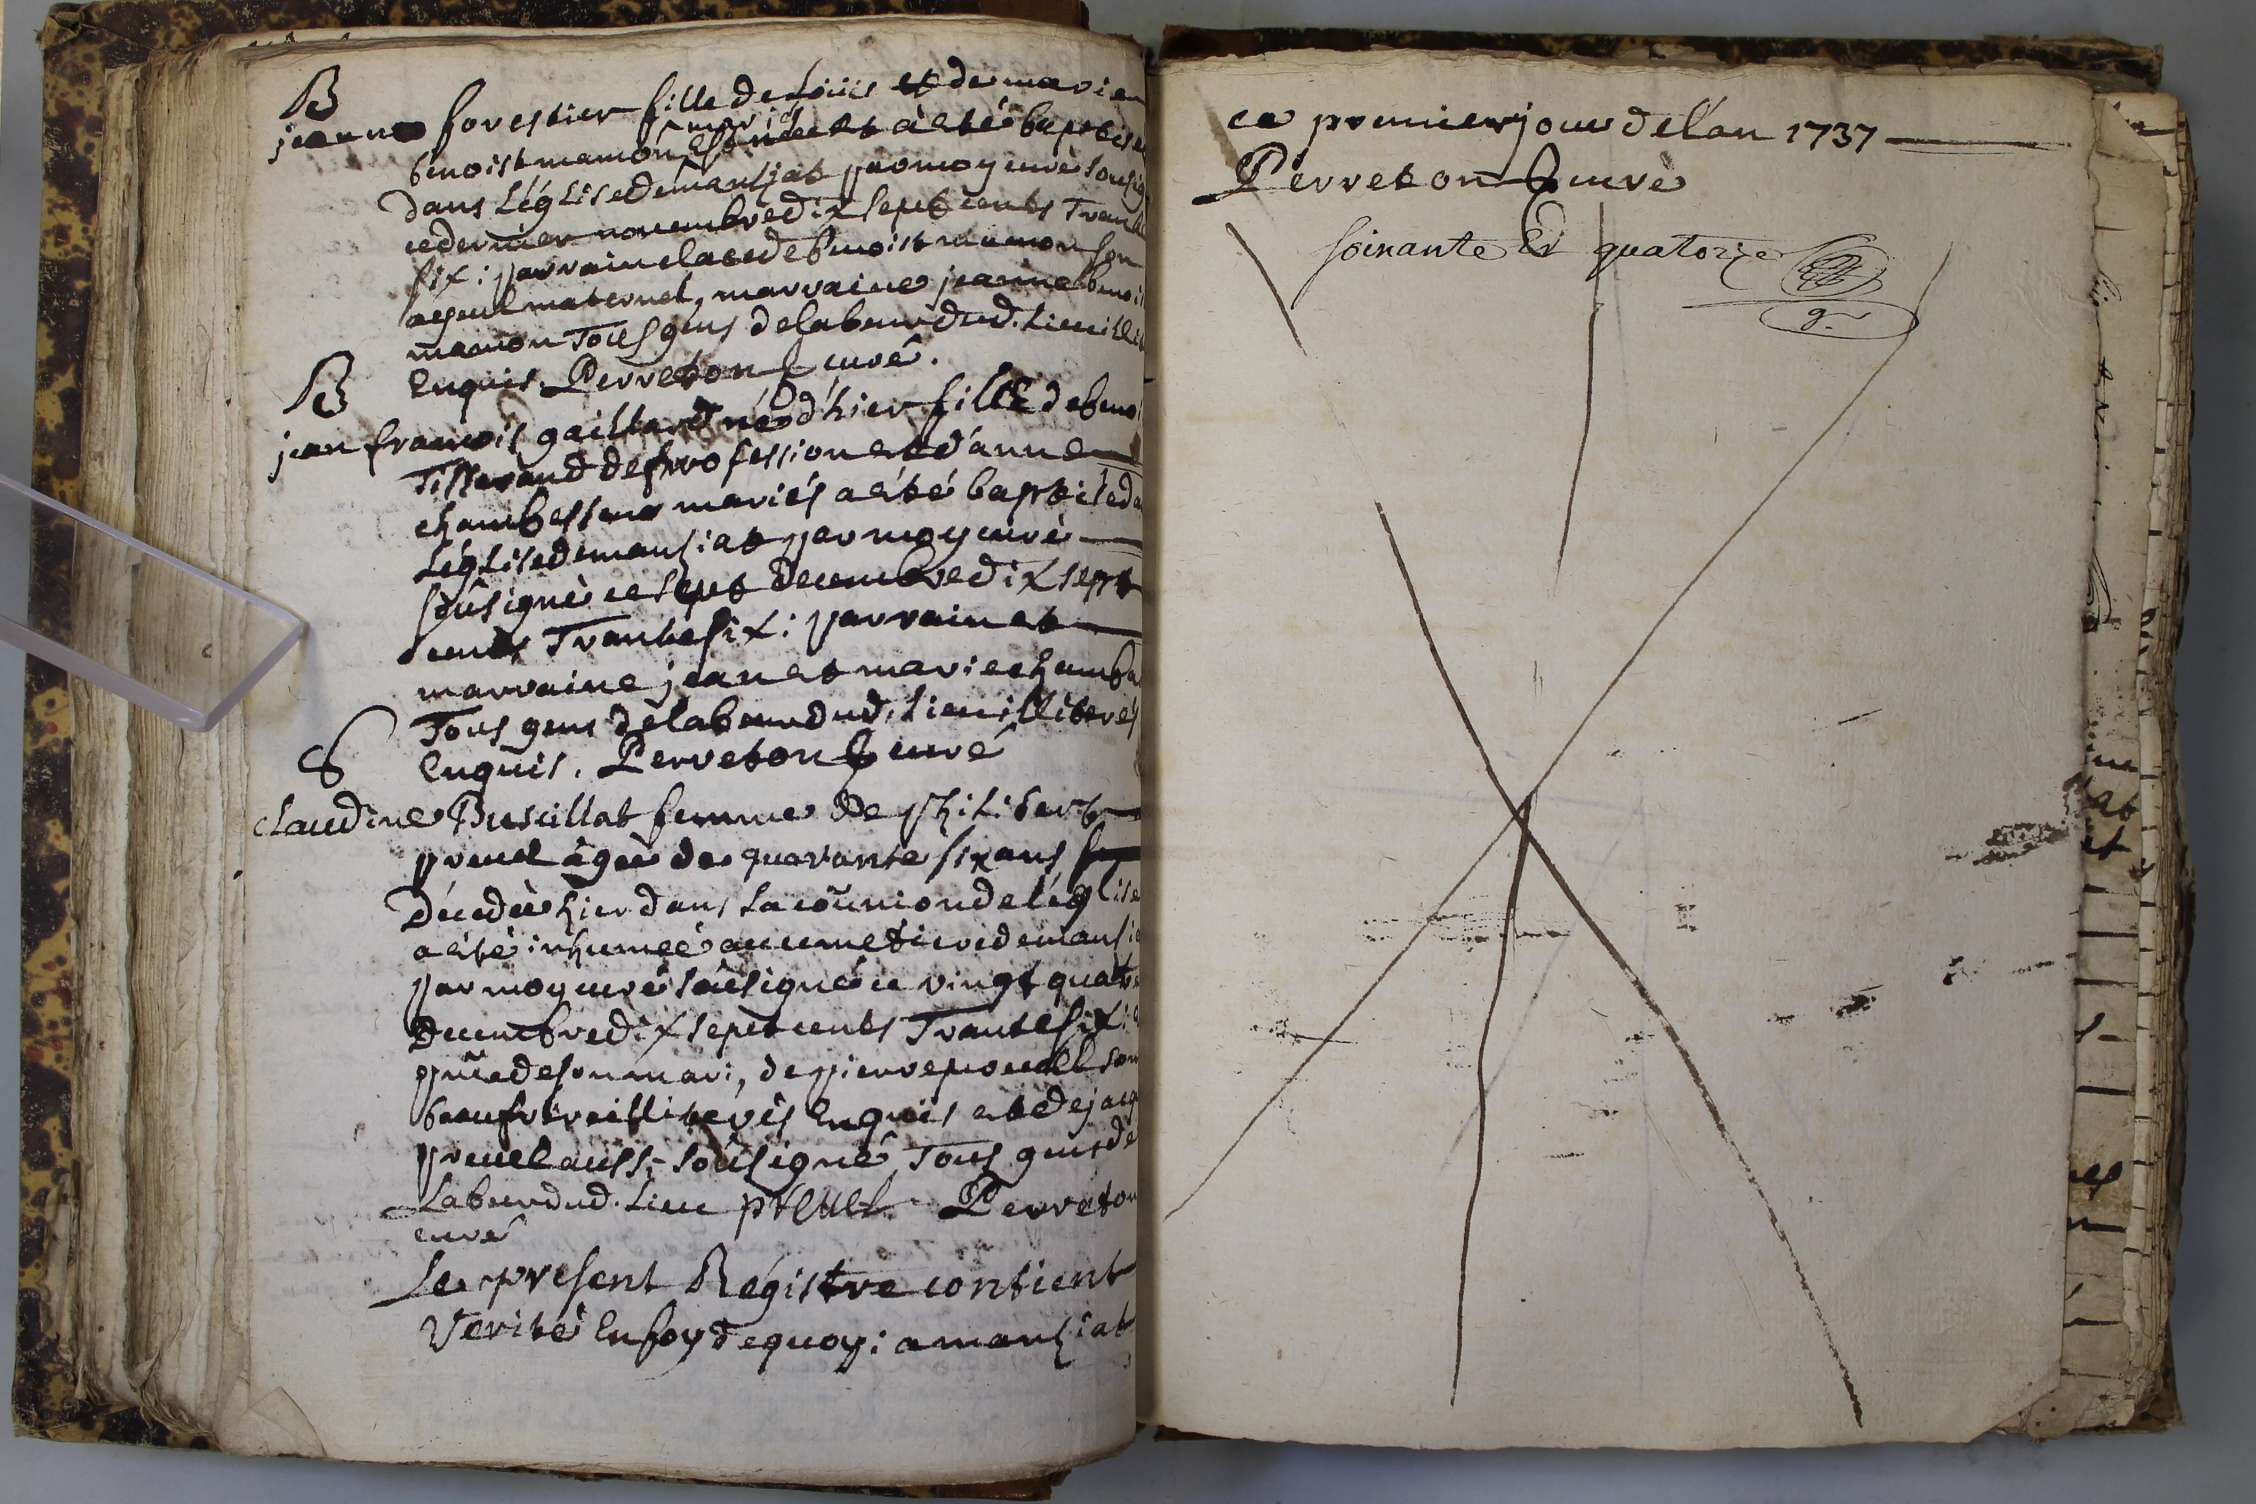 B
jeanne forestier fille de Loüis et de marie
benoist mamon mariés est née et à êté baptisée
dans Léglise de mansiat par moy curé soûsig
ce dernier novembre dix sept cents Trante
six : parrain claude benoist mamon son
ayeul maternel, marraine jeanne benoi
mamon Tous gens de labeur dud. Lieu illi
Enquis. Perreton curé.
B
jean francois gaillard né d'hier fils de beno
Tisserand de profession et d'anne
chambessens mariés a êté baptisé da
Léglise de mansiat par moy curé
soûsigné ce sept decembre dix sept
cents Trante six : parrain et
marraine jean et marie chamba
Tous gens de labeur dud. Lieu illiterés
Enquis. Perreton curé
S
claudine Buscillat femme de philibert
preuel âgée de quarante six ans
Décedée hier dans La coũnion de léglise
a êté inhumeé au cimetiere de mansia
par moy curé soûsigné ce vingt quatre
Decembre dix sept cents Trante six :
pñce de son mari, de pierre preuel son
beaufrere illiterés Enquis et de jacq
preuel aussi soûsigné Tous gens de
Labeur dud. Lieu preuel. Perreton
curé
Le present Régistre contient
Verité En foy de quoy : a mansiat
ce premier jour de l'an 1737
Perreton curé
soixante Et quatorze